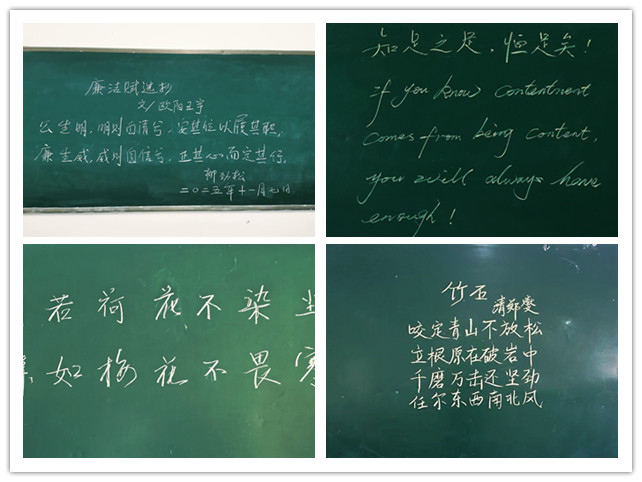 廉洁赋选抄
文/欧阳玉宇
公生明，明则自清兮，安其位以履其职，
廉生威，威则自信兮，正其心而定其行。
柳劲松
二〇二五年十一月七日
知足之足，恒足矣！
if you know contentment
comes from being content,
you will always have
enough！
若荷花不染
如梅花不畏寒
竹石
清郑燮
咬定青山不放松
立根原在破岩中
千磨万击还坚劲
任尔东西南北风